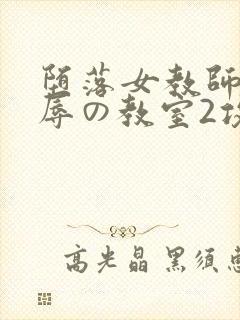 堕落女教師
辱の教室2
高光晶 黒須恵